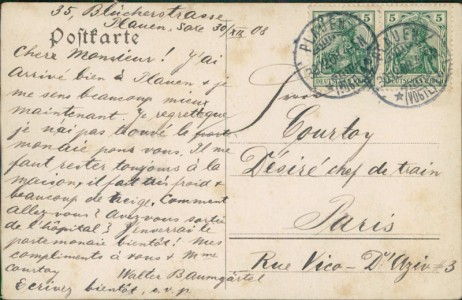 35, Blücherstrasse
Plauen, Sate 30/XII 08
Postkarte
Cher Monsieur! J'ai
arrivé bien à Plauen & je
me sens beaucoup mieux
maintenant. Je regrette que
je n'ai pas trouvé le porte
monaie pour vous. Il me
faut rester toujours à la
maison, il fait très froid &
beaucoup de neige. Comment
allez vous? Avez vous sorti
de l'hôpital? J'enverrai le
portemonaie bientôt! Mes
compliments à vous & Mme
Courtoy
Walter Baumgärtel
Ecrivez bientôt, s.v.p.
PLAUEN
(VOGTL)
5 5
DEUTSCHES REICH
Courtoy
Désiré chef de train
Paris
Rue Vico - D'Azir # 3